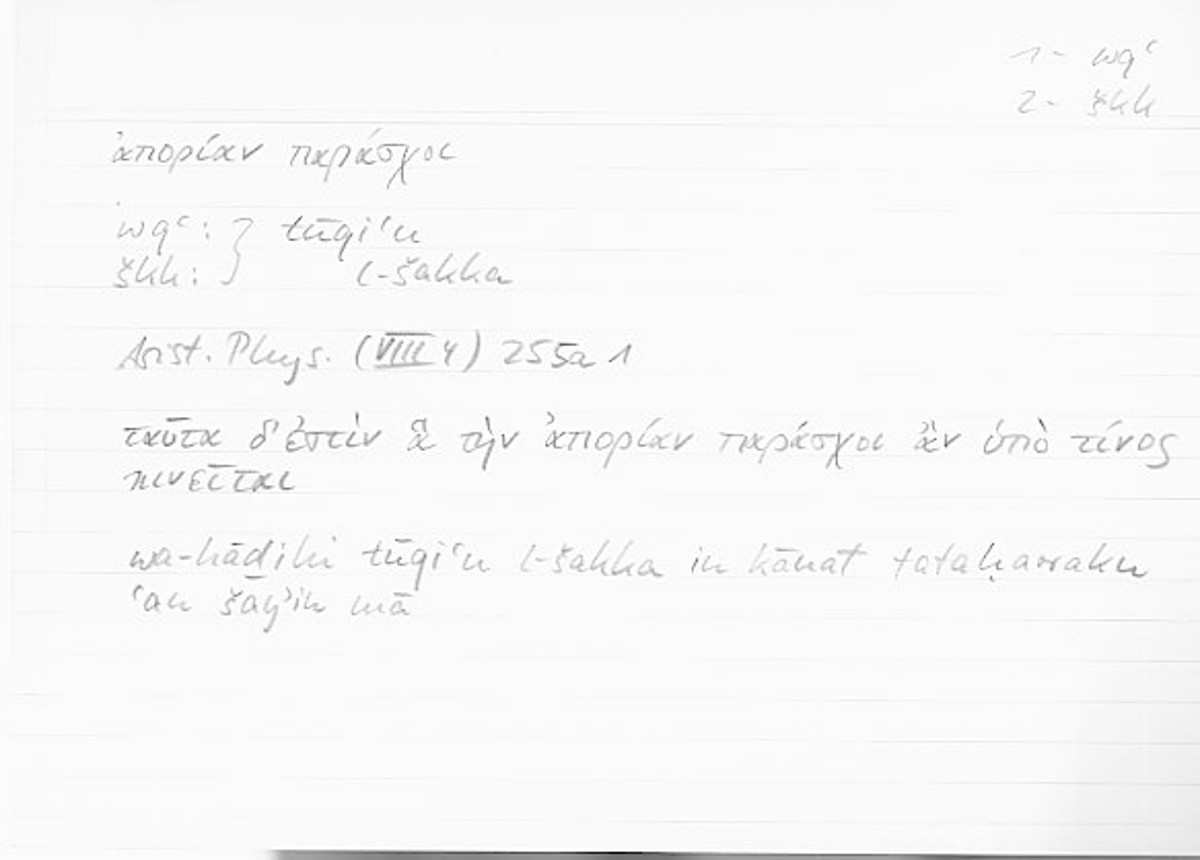 1 - wqʿ
2 - škk
ἀπορίαν παράσχοι
wqʿ: } tūqiʿu
škk: } l-šakka
Arist. Phys. (VIII 4) 255a 1
ταῦτα δ' ἐστὶν ἃ τὴν ἀπορίαν παράσχοι ἂν ὑπὸ τίνος
κινεῖται
wa-hādihi tūqiʿu l-šakka in kānat tataḥarraku
ʿan šayʾin mā